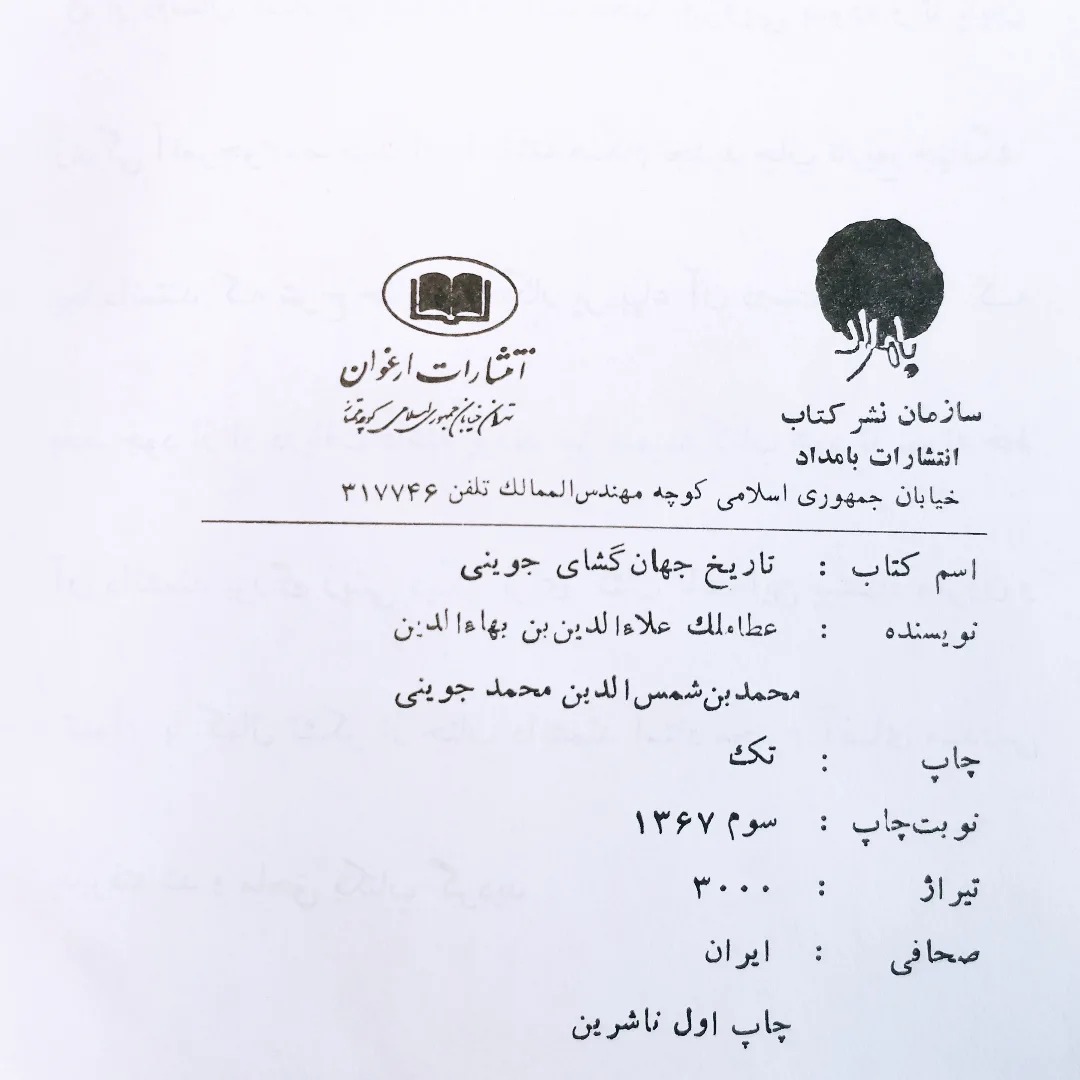 بامداد
سازمان نشر کتاب
انتشارات بامداد
انتشارات ارغوان
تهران خیابان جمهوری اسلامی کوچه
خیابان جمهوری اسلامی کوچه مهندس‌الممالک تلفن ۳۱۷۷۴۶
اسم کتاب : تاریخ جهان گشای جوینی
نویسنده : عطاملک علاءالدین بن بهاءالدین
محمد بن شمس الدین محمد جوینی
چاپ : تک
نوبت چاپ : سوم ۱۳۶۷
تیراژ : ۳۰۰۰
صحافی : ایران
چاپ اول ناشرین